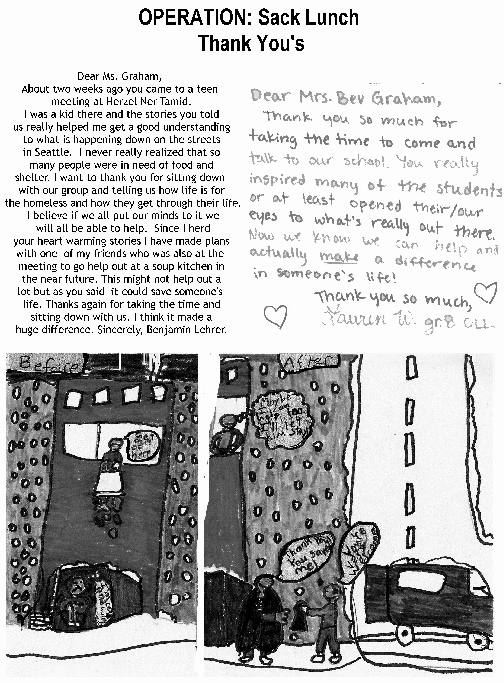 OPERATION: Sack Lunch
Thank You's
Dear Ms. Graham,
About two weeks ago you came to a teen
meeting at Herzel Ner Tamid.
I was a kid there and the stories you told
us really helped me get a good understanding
to what is happening down on the streets
in Seattle. I never really realized that so
many people were in need of food and
shelter. I want to thank you for sitting down
with our group and telling us how life is for
the homeless and how they get through their life.
I believe if we all put our minds to it we
will all be able to help. Since I herd
your heart warming stories I have made plans
with one of my friends who was also at the
meeting to go help out at a soup kitchen in
the near future. This might not help out a
lot but as you said it could save someone's
life. Thanks again for taking the time and
sitting down with us. I think it made a
huge difference. Sincerely, Benjamin Lehrer.
Dear Mrs. Bev Graham,
Thank you so much for
taking the time to come and
talk to our school. You really
inspired many of the students
or at least opened their/our
eyes to what's really out there.
Now we know we can help and
actually make a difference
in someone's life!
Thank you so much,
Lauren W. gr.8
Before
After
Thank you
you save
me!